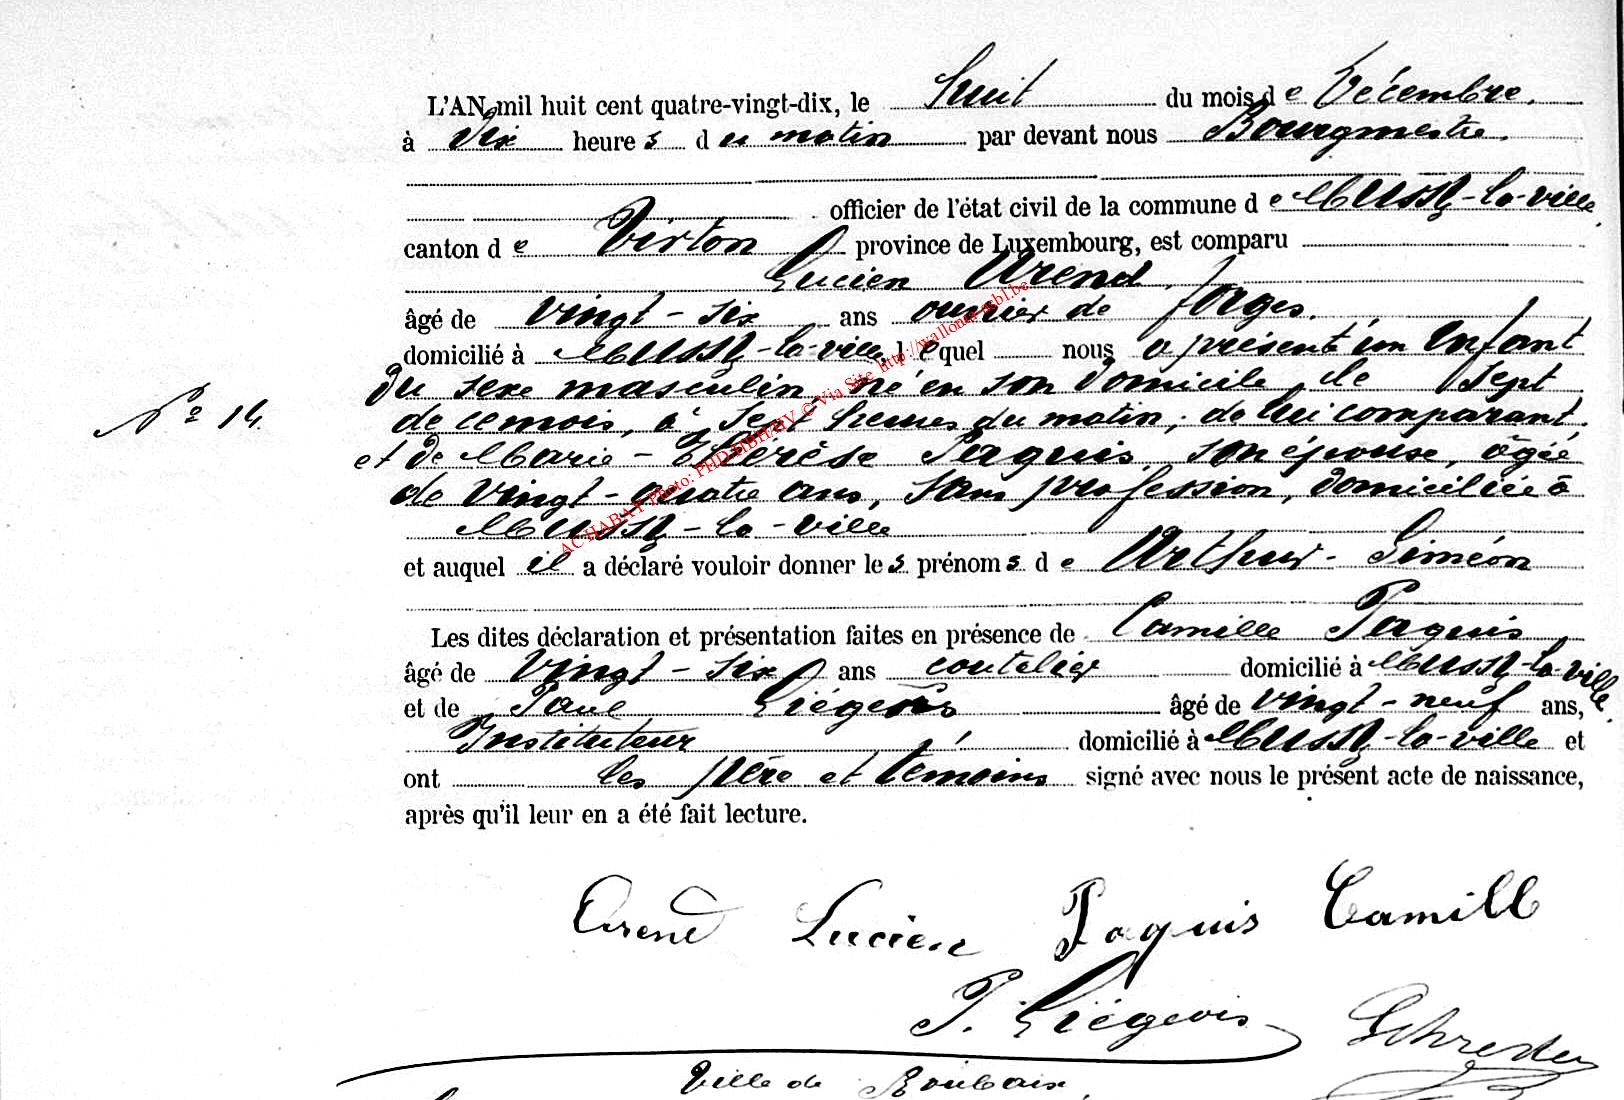 L'AN mil huit cent quatre-vingt-dix, le huit du mois de Décembre.
à dix heures du matin par devant nous Bourgmestre.
officier de l'état civil de la commune de Mussy-la-ville,
canton de Virton province de Luxembourg, est comparu
Lucien Arend,
âgé de vingt-six ans ouvrier de forges.
domicilié à Mussy-la-ville, lequel nous a présenté un enfant
du sexe masculin, né en son domicile, le sept
de ce mois, à sept heures du matin; de lui comparant,
N° 14.
et de Marie-Thérèse Paquis, son épouse, âgée
de vingt-quatre ans, sans profession, domiciliée à
Mussy-la-ville
et auquel il a déclaré vouloir donner les prénoms de Arthur-Siméon
Les dites déclaration et présentation faites en présence de Camille Paquis,
âgé de vingt-six ans coutelier domicilié à Mussy-la-ville,
et de Paul Liégeois âgé de vingt-neuf ans,
Instituteur domicilié à Mussy-la-ville et
ont les père et témoins signé avec nous le présent acte de naissance,
après qu'il leur en a été fait lecture.
Arend Lucien Paquis Camill
P. Liégeois
Ville de Roubaix
ACHABAT Photo: PHD-HBH-HY © Via Site http://wallonia-asbl.be